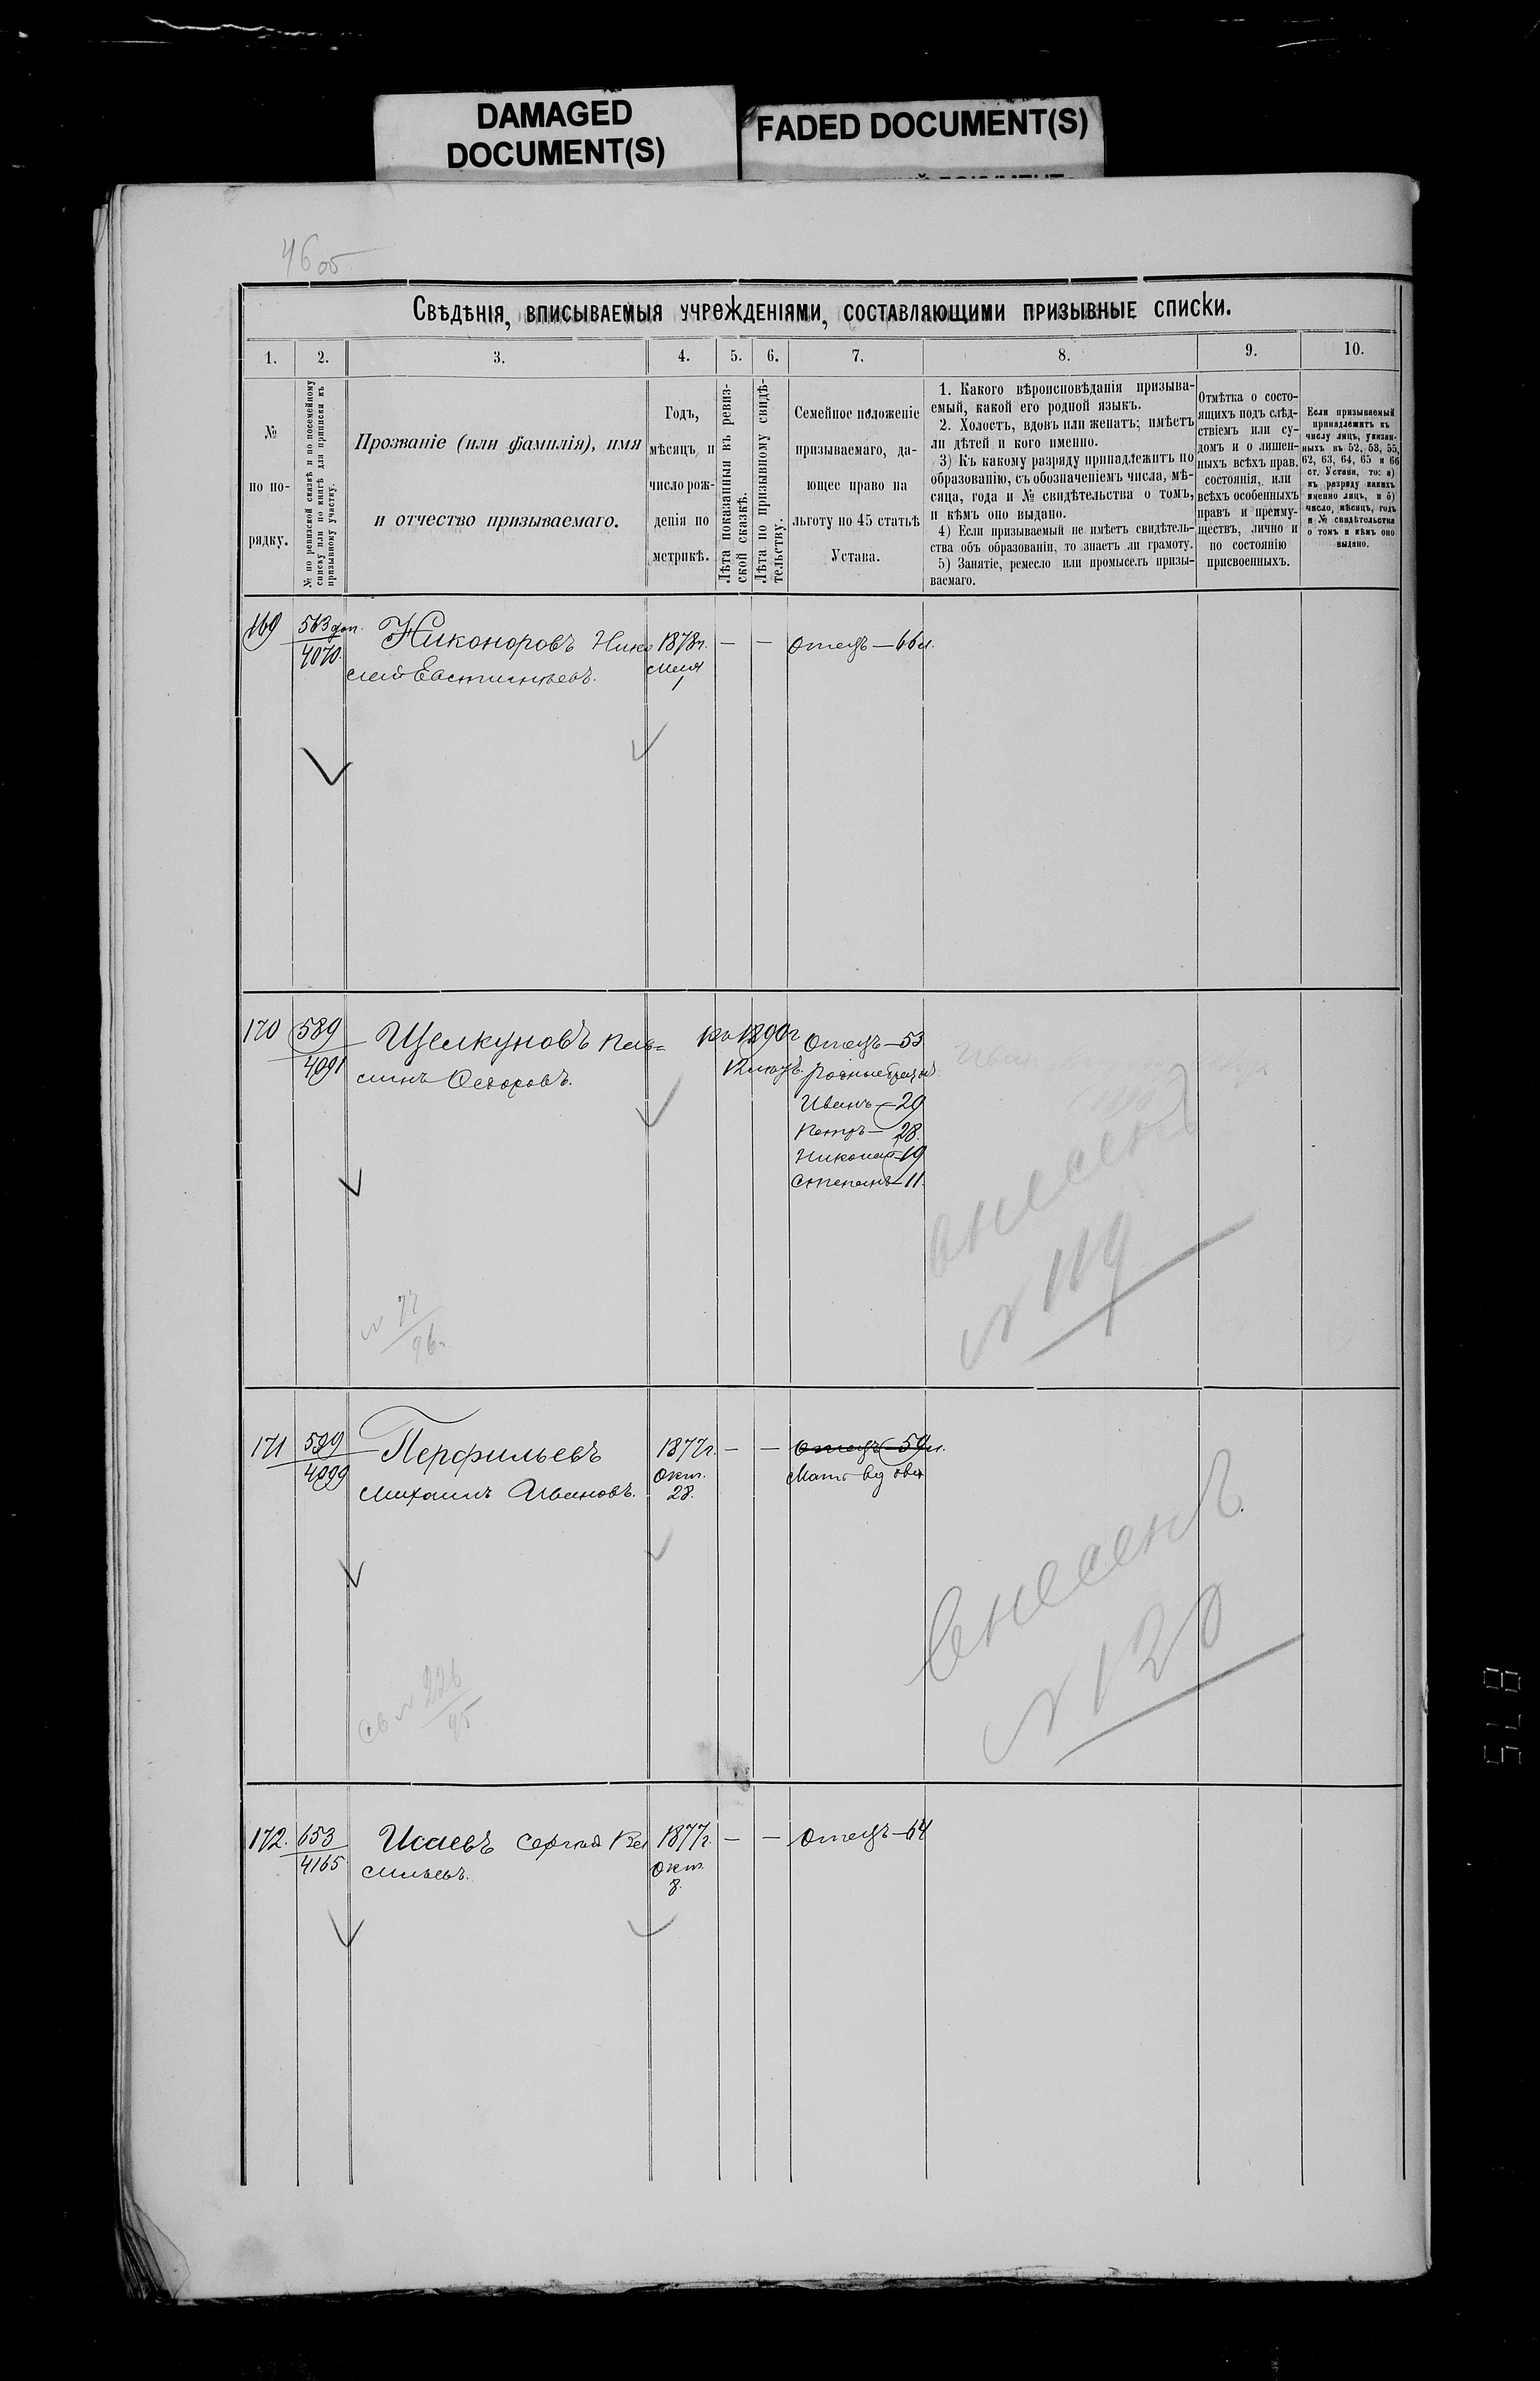 DAMAGED
DOCUMENT(S)
FADED DOCUMENT(S)
46 об
Свѣдѣнія, вписываемыя учрежденіями, составляющими призывные списки.
1. 2. 3. 4. 5. 6. 7. 8. 9. 10.
№
по по-
рядку.
№ по ревизской сказкѣ и по посемейному
списку или по книгѣ для приписки къ
призывному участку.
Прозваніе (или фамилія), имя
и отчество призываемаго.
Годъ,
мѣсяцъ, и
число рож-
денія по
метрикѣ.
Лѣта показанныя въ ревиз-
ской сказкѣ.
Лѣта по призывному свидѣ-
тельству.
Семейное положеніе
призываемаго, да-
ющее право на
льготу по 45 статьѣ
Устава.
1. Какого вѣроисповѣданія призыва-
емый, какой его родной языкъ.
2. Холостъ, вдовъ или женатъ; имѣетъ
ли дѣтей и кого именно.
3) Къ какому разряду принадлежитъ по
образованію, съ обозначеніемъ числа, мѣ-
сяца, года и № свидѣтельства о томъ,
и кѣмъ оно выдано.
4) Если призываемый не имѣетъ свидѣтель-
ства объ образованіи, то знаетъ ли грамоту.
5) Занятіе, ремесло или промыселъ призы-
ваемаго.
Отмѣтка о состо-
ящихъ подъ слѣд-
ствіемъ или су-
домъ и о лишен-
ныхъ всѣхъ прав.
состоянія, или
всѣхъ особенныхъ
правъ и преиму-
ществъ, лично и
по состоянію
присвоенныхъ.
Если призываемый
принадлежитъ къ
числу лицъ, указан-
ныхъ въ 52, 53, 55,
62, 63, 64, 65 и 66
ст. Устава, то: а)
къ разряду какихъ
именно лицъ, и б)
число, мѣсяцъ, годъ
и № свидѣтельства
о томъ и кѣмъ оно
выдано.
169 563 доп. Никоноровъ Нико 1878г. — — Отецъ — 66л.
4070. лай Евстигнѣевъ. Мая
1
170 589 Щелкуновъ Пав= 1890г Отецъ — 53
4091 линъ Ѳедоровъ. Родные братья
Иванъ — 29
Петръ — 28.
Николай — 19
Степанъ — 11.
внесенъ
№ 119
№ 77
96.
171 599 Перфильевъ 1877г. — — Отецъ 59л.
4099 Михаилъ Ивановъ. Окт. Мать вдова
28.
внесенъ
№ 120
св № 226
95
172. 653 Исаевъ Сергѣй Ва 1877г. — — Отецъ — 64
4165. сильевъ. Окт.
8.
875